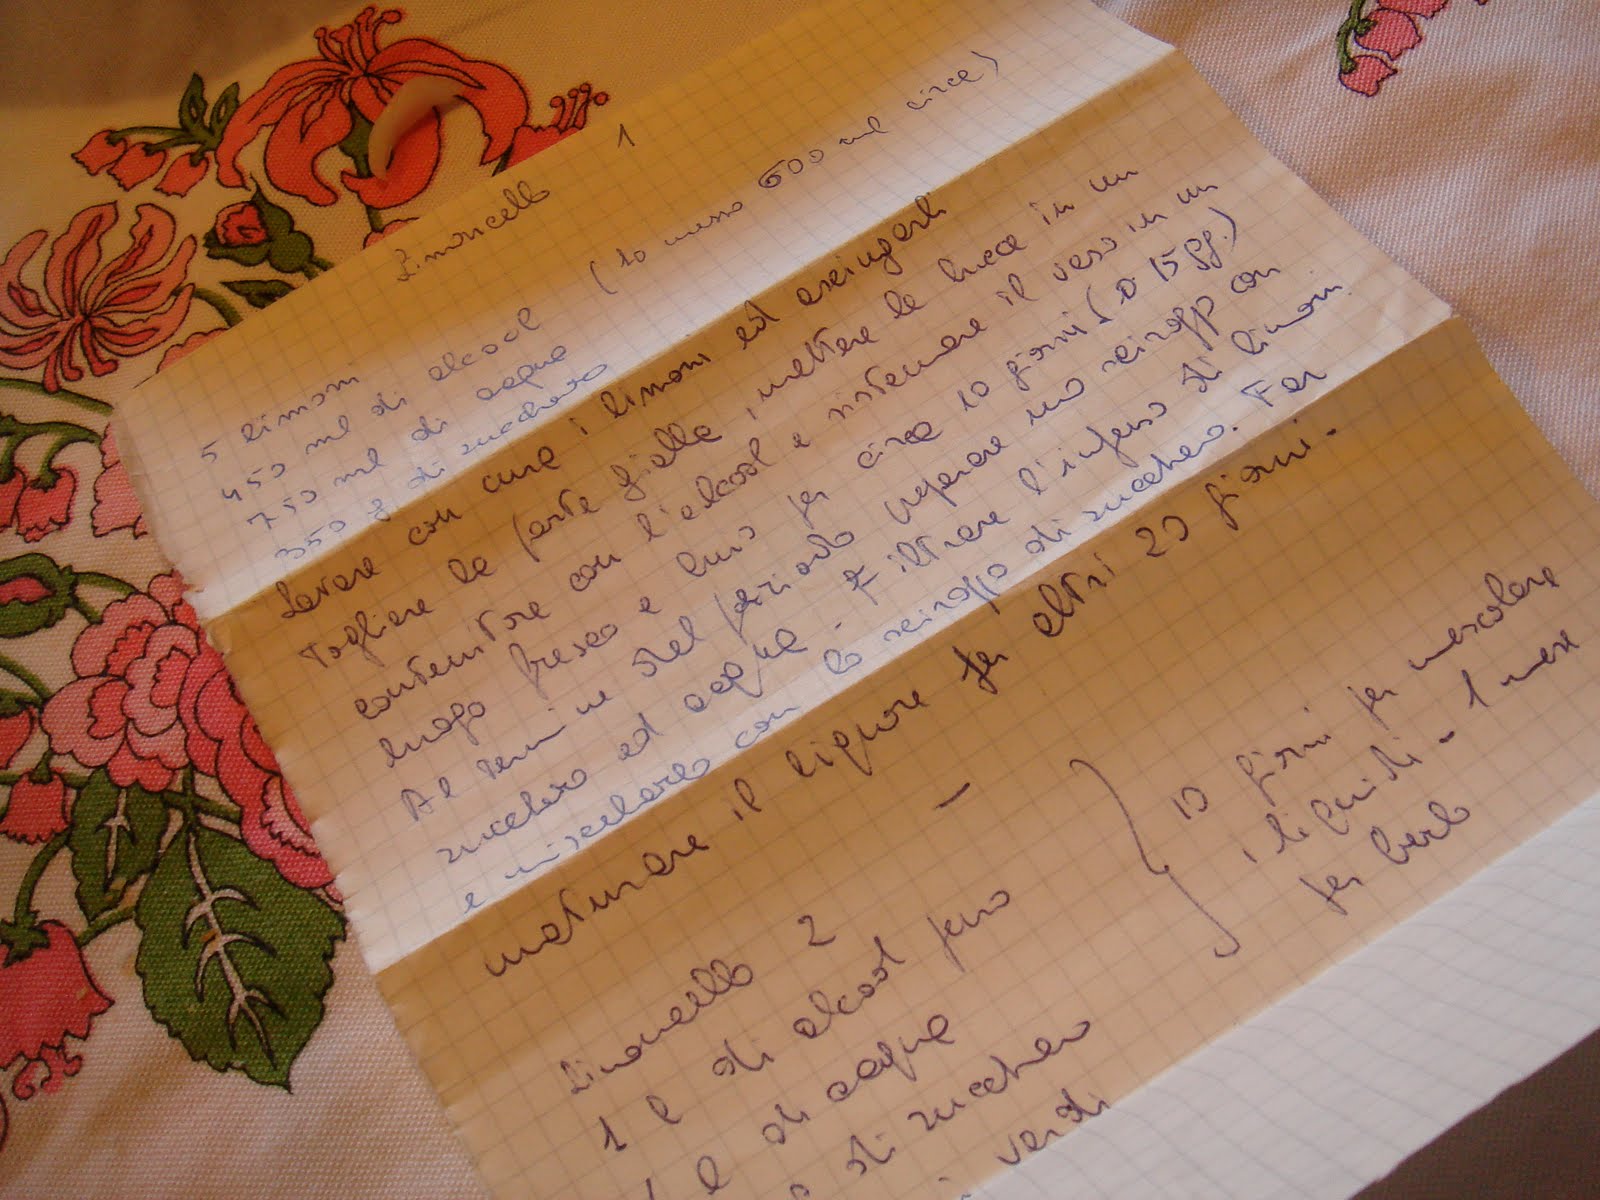 Limoncello 1
5 limoni
450 ml di alcool (Io messo 600 ml circa)
750 ml di acqua
350 g di zucchero
Lavare con cura i limoni ed asciugarli
Togliere la parte gialla, mettere le bucce in un
contenitore con l'alcool e sistemare il vaso in un
luogo fresco e buio per circa 10 giorni (o 15 gg.)
Al termine del periodo preparare uno sciroppo con
zucchero ed acqua - Filtrare l'infuso di limoni
e miscelarlo con lo sciroppo di zucchero. Far
maturare il liquore per altri 20 giorni.
Limoncello 2
1 l di alcool puro
1 l di acqua
di zucchero
verdi
10 giorni per mescolare
i liquidi - 1 mese
per berlo